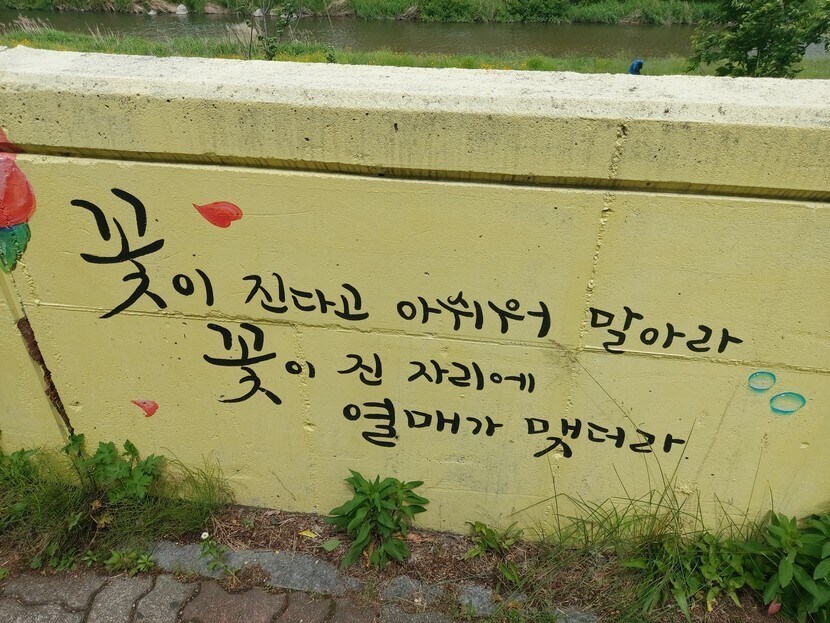 꽃이 진다고 아쉬워 말아라
꽃이 진 자리에
열매가 맺더라